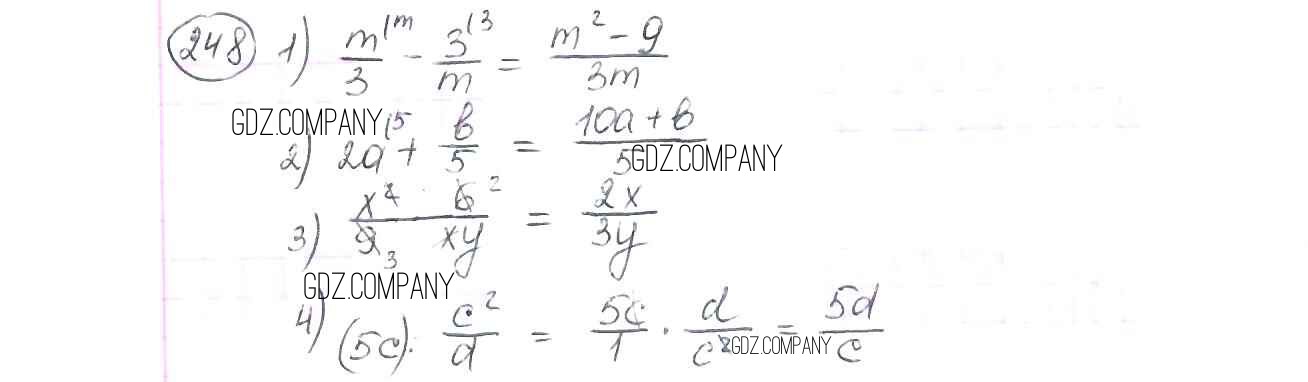 248 1) m^{1m}/3 - 3^{13}/m = (m² - 9)/(3m)
GDZ.COMPANY
2) 2a^{15} + b/5 = (10a + b)/5
GDZ.COMPANY
3) (x² · 6²)/(9₃ xy) = 2x/3y
GDZ.COMPANY
4) (5c) · c²/d = 5c/1 · d/c² = 5d/c
GDZ.COMPANY